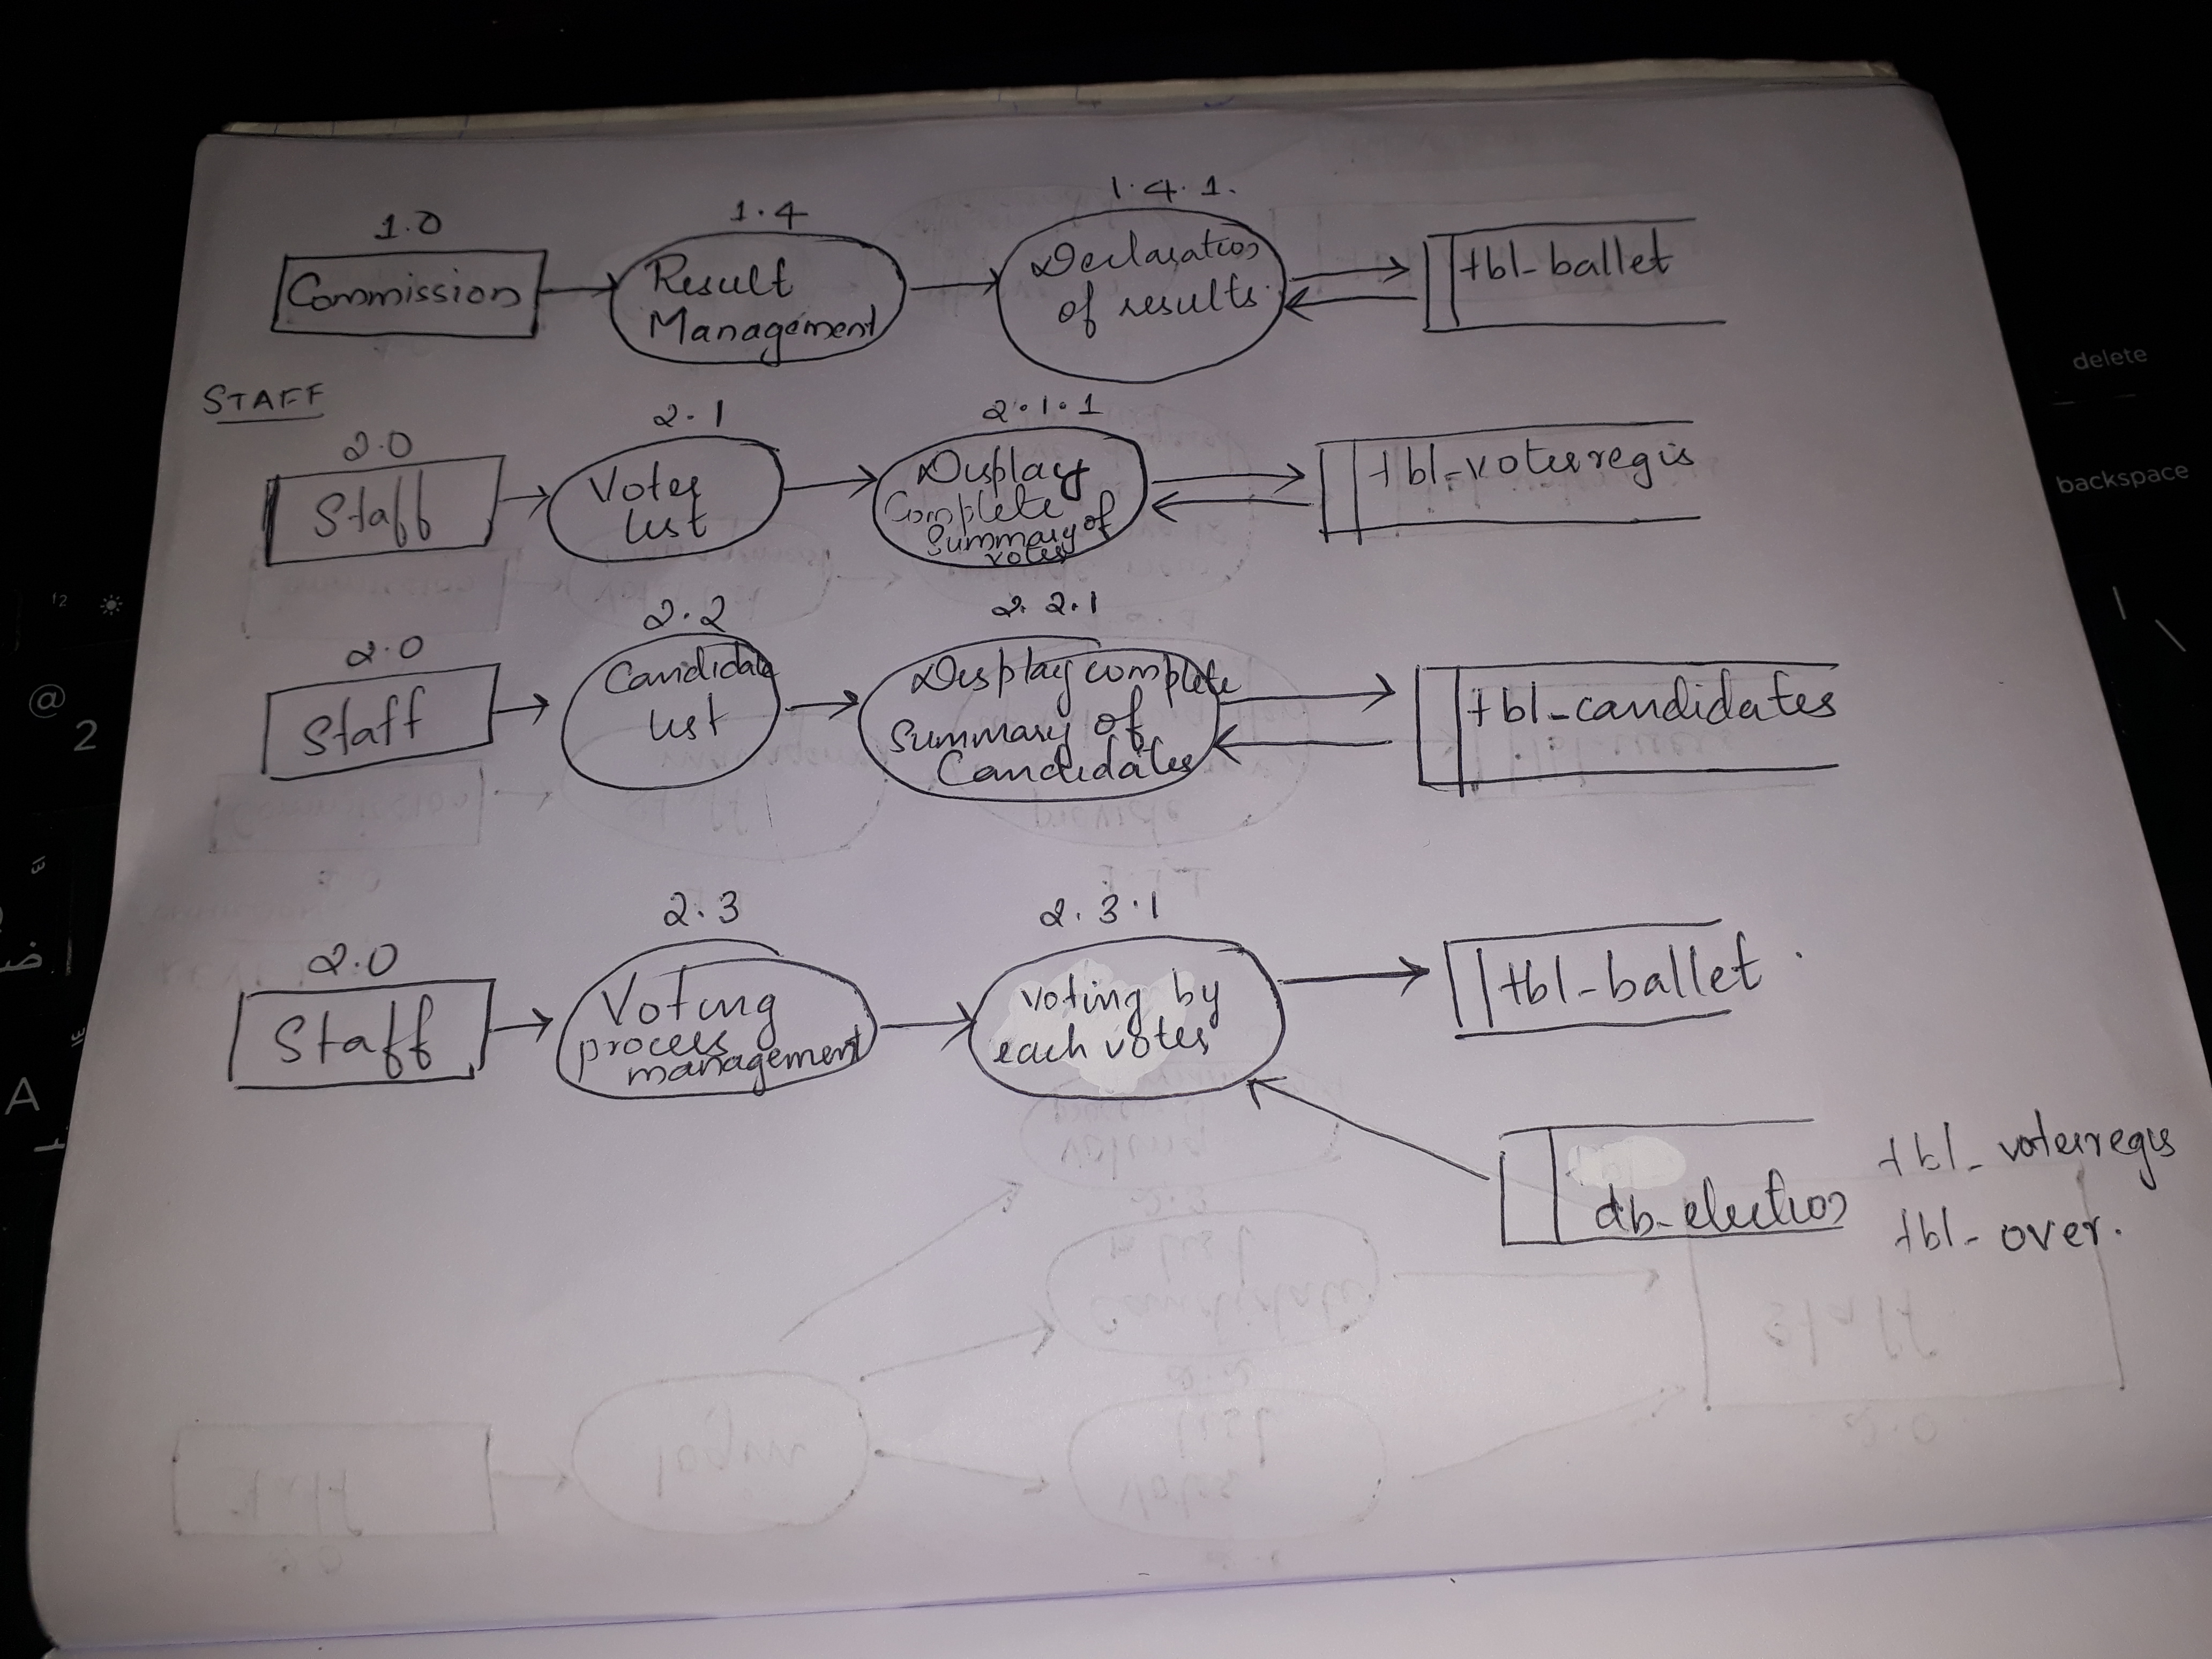 1.0
1.4
1.4.1.
Commission
Result
Management
Declaration
of results
tbl-ballet
STAFF
2.0
2.1
2.1.1
Staff
Voter
list
Display
Complete
Summary of
voter
tbl-voterregis
2.0
2.2
2.2.1
Staff
Candidate
list
Display complete
Summary of
Candidates
tbl-candidates
2.0
2.3
2.3.1
Staff
Voting
process
management
voting by
each voter
tbl-ballet
db-election
tbl-voterregis
tbl-over.
delete
backspace
@
2
A